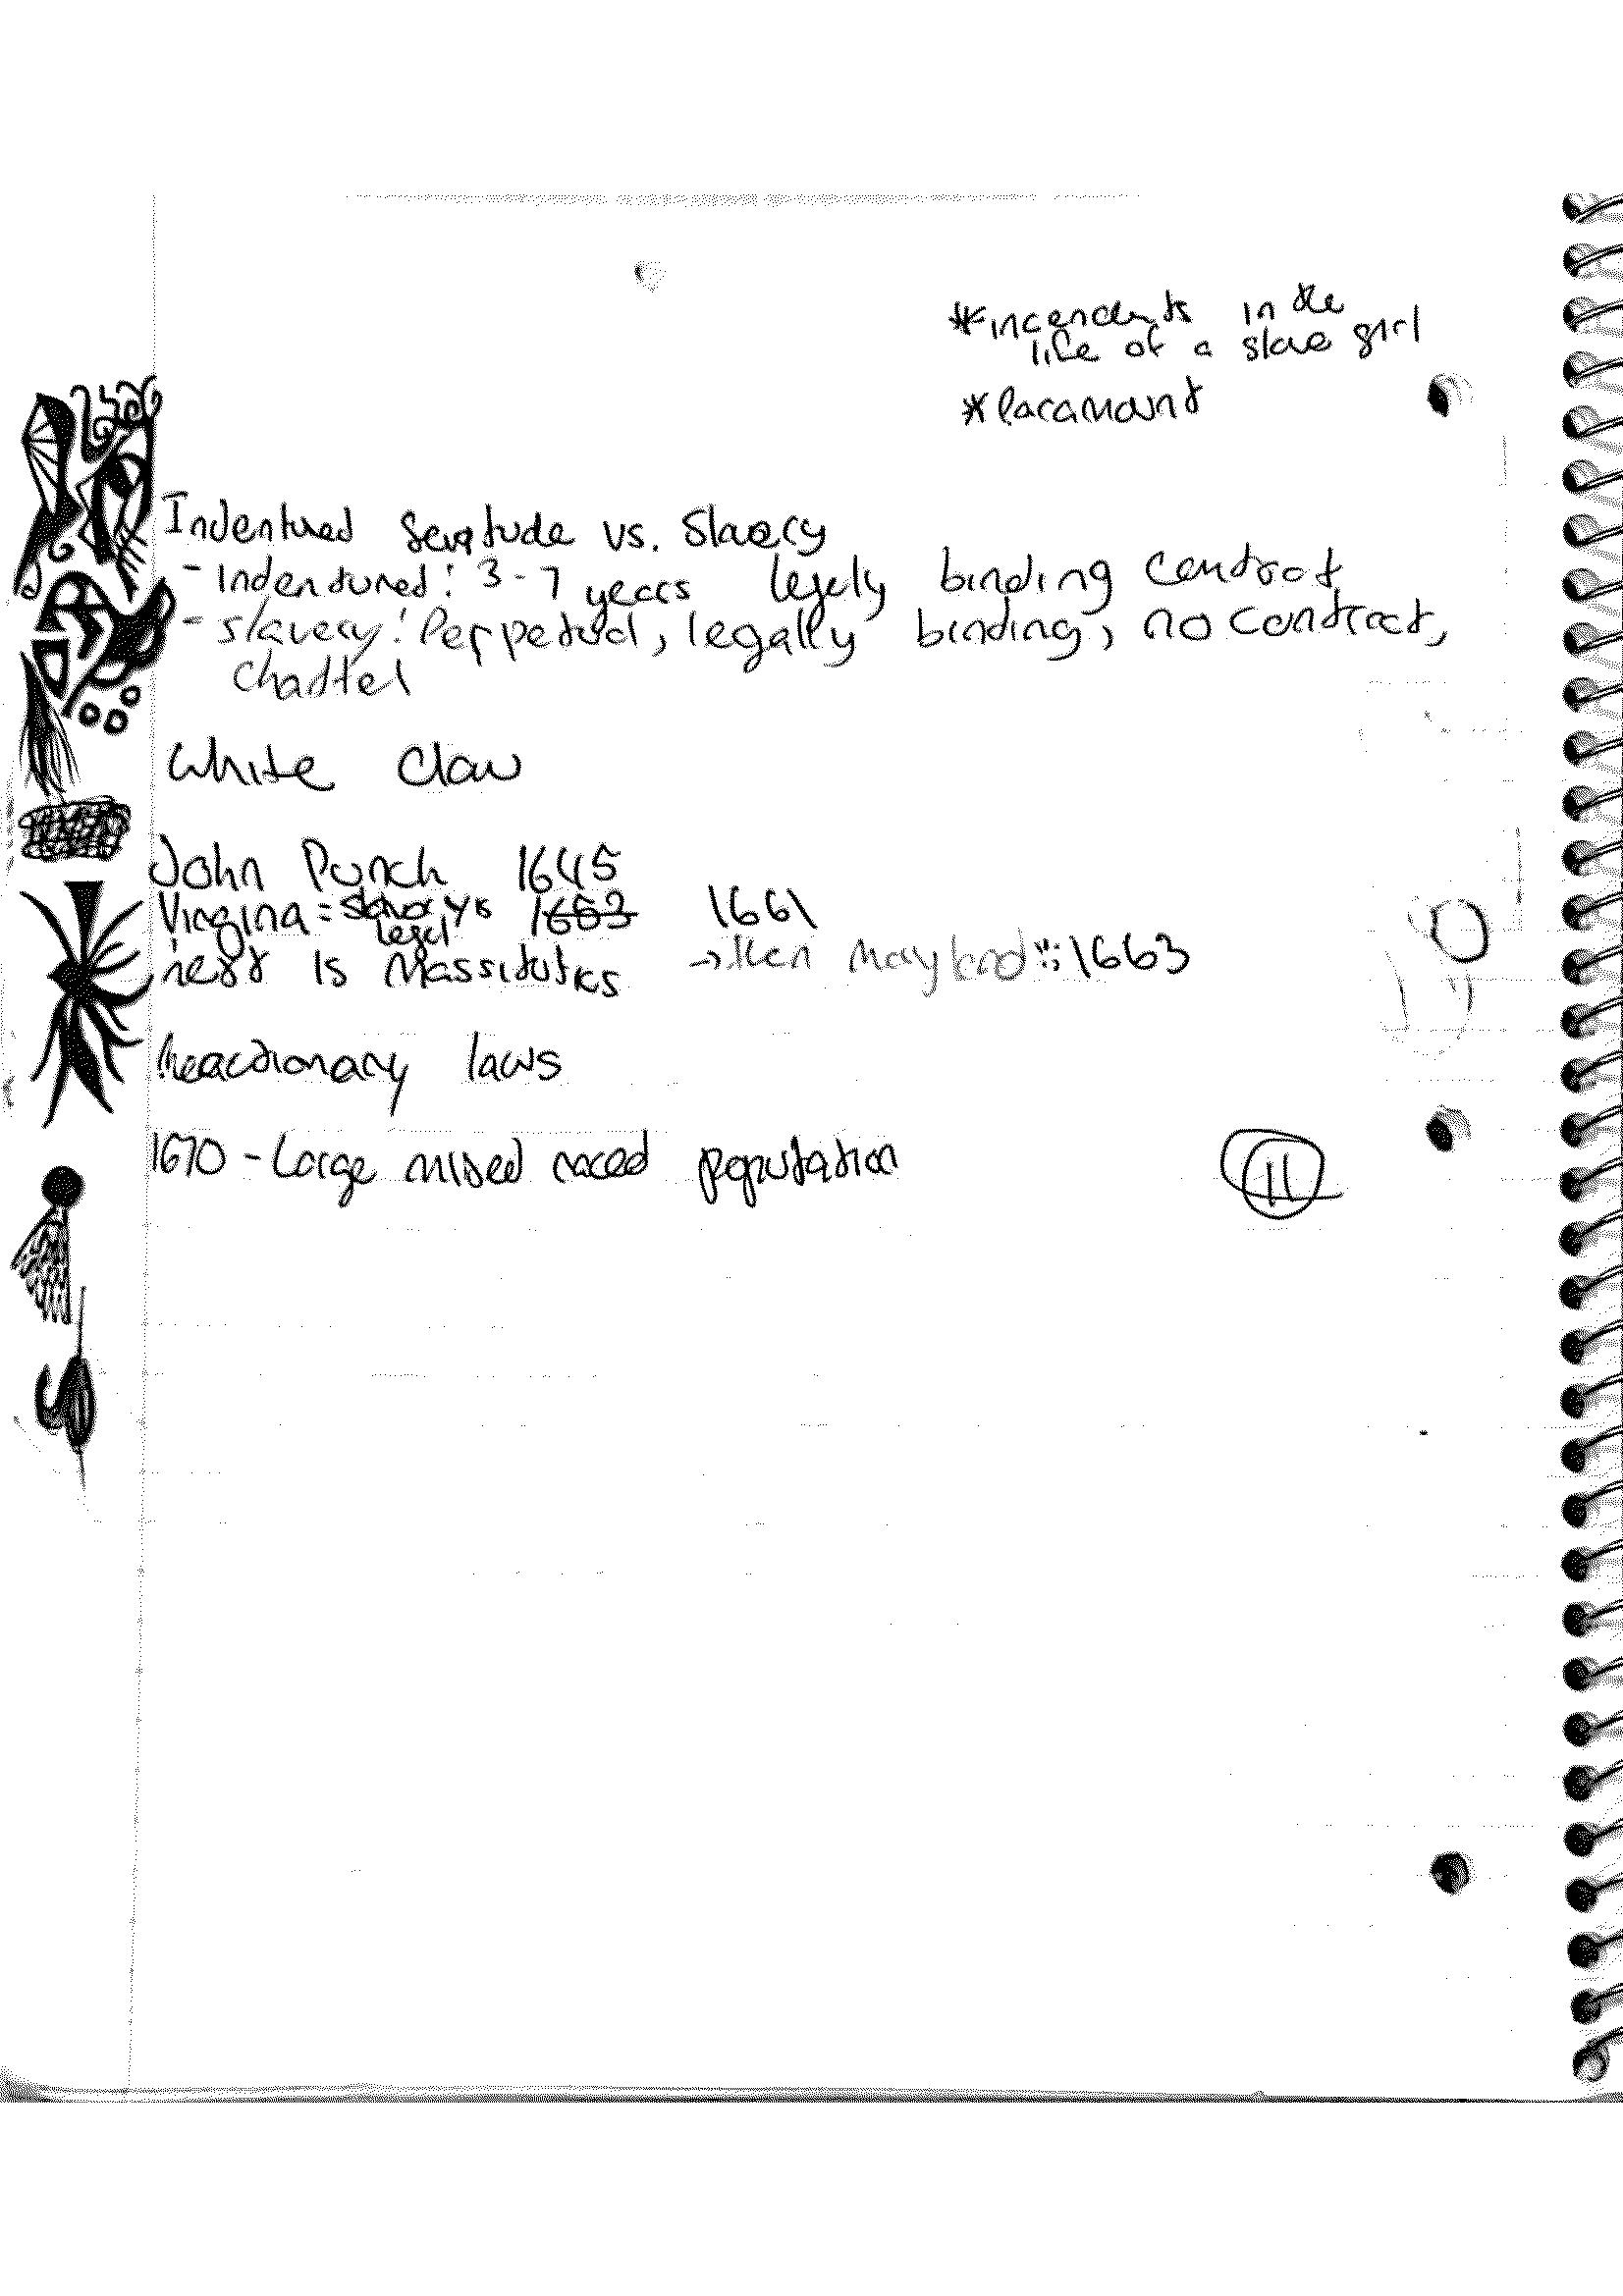 *incendents in the
life of a slave girl
*Paramount
Indentured Servitude vs. Slavery
- Indentured: 3-7 years legely binding Contract
- slavery: Perpetual, legally binding, no contract,
Chattel
White Claw
John Punch 1645
Virgina = slavery is legal 1663 1661
next is Massitutkis → then Mayland 1663
Reactionary laws
1670 - Large mixed raced population
11